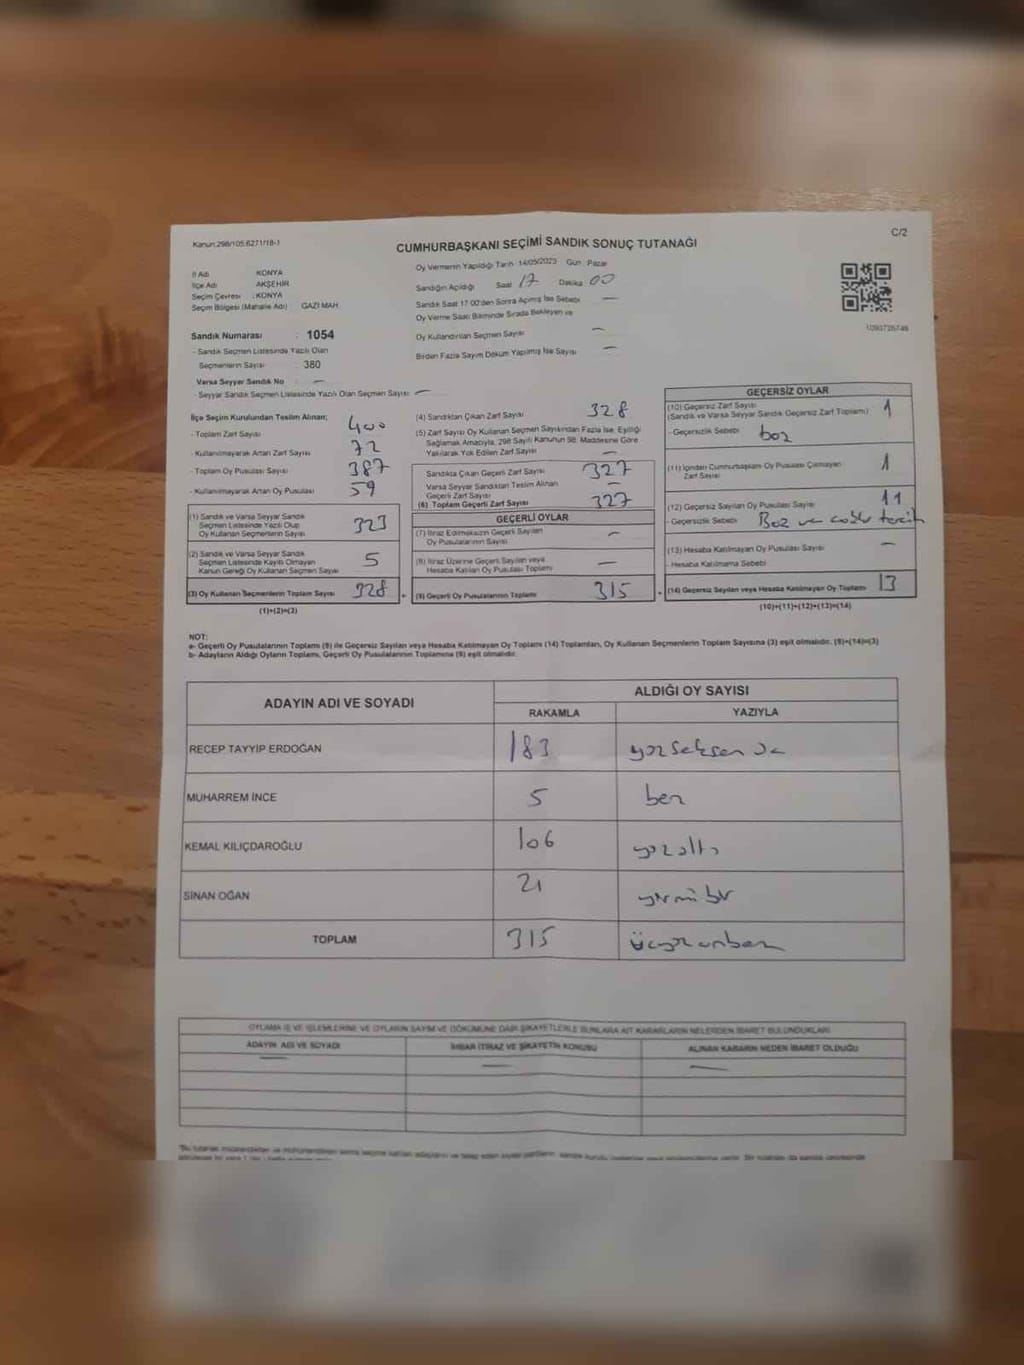 Kanun:298/105.6271/18-1
C/2
CUMHURBAŞKANI SEÇİMİ SANDIK SONUÇ TUTANAĞI
İl Adı KONYA
İlçe Adı AKŞEHİR
Seçim Çevresi : KONYA
Seçim Bölgesi (Mahalle Adı) GAZİ MAH.
Sandık Numarası : 1054
- Sandık Seçmen Listesinde Yazılı Olan
Seçmenlerin Sayısı : 380
Varsa Seyyar Sandık No : —
- Seyyar Sandık Seçmen Listesinde Yazılı Olan Seçmen Sayısı : —
Oy Vermenin Yapıldığı Tarih : 14/05/2023 Gün : Pazar
Sandığın Açıldığı Saat 17 Dakika 00
Sandık Saat 17:00'den Sonra Açılmış İse Sebebi —
Oy Verme Saati Bitiminde Sırada Bekleyen ve
Oy Kullandırılan Seçmen Sayısı —
Birden Fazla Sayım Döküm Yapılmış İse Sayısı —
1093726746
İlçe Seçim Kurulundan Teslim Alınan;
- Toplam Zarf Sayısı 400
- Kullanılmayarak Artan Zarf Sayısı 72
- Toplam Oy Pusulası Sayısı 387
- Kullanılmayarak Artan Oy Pusulası 59
(1) Sandık ve Varsa Seyyar Sandık
Seçmen Listesinde Yazılı Olup
Oy Kullanan Seçmenlerin Sayısı 323
(2) Sandık ve Varsa Seyyar Sandık
Seçmen Listesinde Kayıtlı Olmayan
Kanun Gereği Oy Kullanan Seçmen Sayısı 5
(3) Oy Kullanan Seçmenlerin Toplam Sayısı 328
(1)+(2)=(3)
(4) Sandıktan Çıkan Zarf Sayısı 328
(5) Zarf Sayısı Oy Kullanan Seçmen Sayısından Fazla İse, Eşitliği
Sağlamak Amacıyla, 298 Sayılı Kanunun 98. Maddesine Göre
Yakılarak Yok Edilen Zarf Sayısı —
Sandıkta Çıkan Geçerli Zarf Sayısı 327
Varsa Seyyar Sandıktan Teslim Alınan
Geçerli Zarf Sayısı —
(6) Toplam Geçerli Zarf Sayısı 327
GEÇERLİ OYLAR
(7) İtiraz Edilmeksizin Geçerli Sayılan
Oy Pusulalarının Sayısı —
(8) İtiraz Üzerine Geçerli Sayılan veya
Hesaba Katılan Oy Pusulası Toplamı —
(9) Geçerli Oy Pusulalarının Toplamı 315
GEÇERSİZ OYLAR
(10) Geçersiz Zarf Sayısı
(Sandık ve Varsa Seyyar Sandık Geçersiz Zarf Toplamı) 1
- Geçersizlik Sebebi boz
(11) İçinden Cumhurbaşkanı Oy Pusulası Çıkmayan
Zarf Sayısı 1
(12) Geçersiz Sayılan Oy Pusulası Sayısı 11
- Geçersizlik Sebebi Boz ve çoğlu tercih
(13) Hesaba Katılmayan Oy Pusulası Sayısı —
- Hesaba Katılmama Sebebi
(14) Geçersiz Sayılan veya Hesaba Katılmayan Oy Toplamı 13
(10)+(11)+(12)+(13)=(14)
NOT:
a- Geçerli Oy Pusulalarının Toplamı (9) ile Geçersiz Sayılan veya Hesaba Katılmayan Oy Toplamı (14) Toplamları, Oy Kullanan Seçmenlerin Toplam Sayısına (3) eşit olmalıdır. (9)+(14)=(3)
b- Adayların Aldığı Oyların Toplamı, Geçerli Oy Pusulalarının Toplamına (9) eşit olmalıdır.
ADAYIN ADI VE SOYADI ALDIĞI OY SAYISI
RAKAMLA YAZIYLA
RECEP TAYYİP ERDOĞAN 183 yüzseksen üç
MUHARREM İNCE 5 beş
KEMAL KILIÇDAROĞLU 106 yüzaltı
SİNAN OĞAN 21 yirmi bir
TOPLAM 315 üçyüzonbeş
OYLAMA İŞ VE İŞLEMLERİNE VE OYLARIN SAYIM VE DÖKÜMÜNE DAİR ŞİKAYETLERLE BUNLARA AİT KARARLARIN NELERDEN İBARET BULUNDUKLARI
ADAYIN ADI VE SOYADI İHBAR İTİRAZ VE ŞİKAYETİN KONUSU ALINAN KARARIN NEDEN İBARET OLDUĞU
— — —